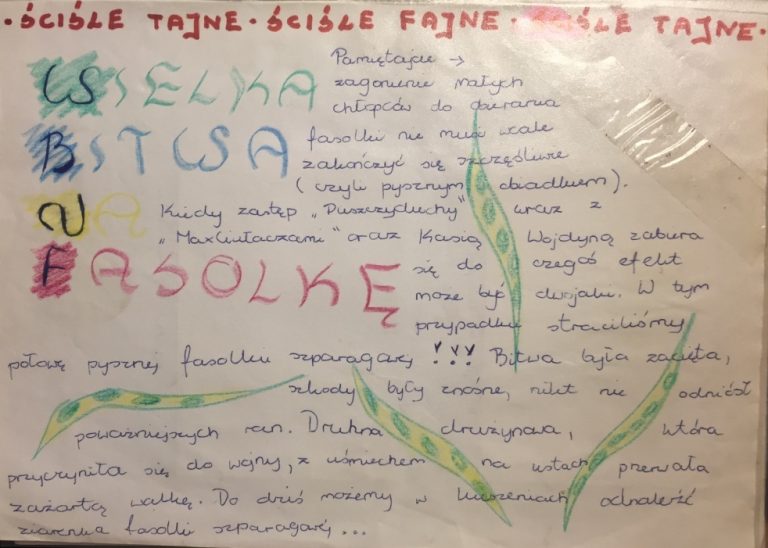 · ŚCIŚLE TAJNE · ŚCIŚLE FAJNE · ŚCIŚLE TAJNE ·
WIELKA
BITWA
NA
FASOLKĘ
Pamiętajcie →
zagonienie małych
chłopców do zbierania
fasolki nie musi wcale
zakończyć się szczęśliwie
(czyli pysznym obiadkiem).
Kiedy zastęp „Duszczyduchy" wraz z
„MaxCiułaczami" oraz Kasią Wojdyną zabiera
się do czegoś efekt
może być dwojaki. W tym
przypadku straciliśmy
połowę pysznej fasolki szparagowej !!! Bitwa była zacięta,
szkody były znośne, nikt nie odniósł
poważniejszych ran. Druhna drużynowa, która
przyczyniła się do wojny, z uśmiechem na ustach przerwała
zażartą walkę. Do dziś możemy w kieszeniach odnaleźć
ziarenka fasolki szparagowej ...